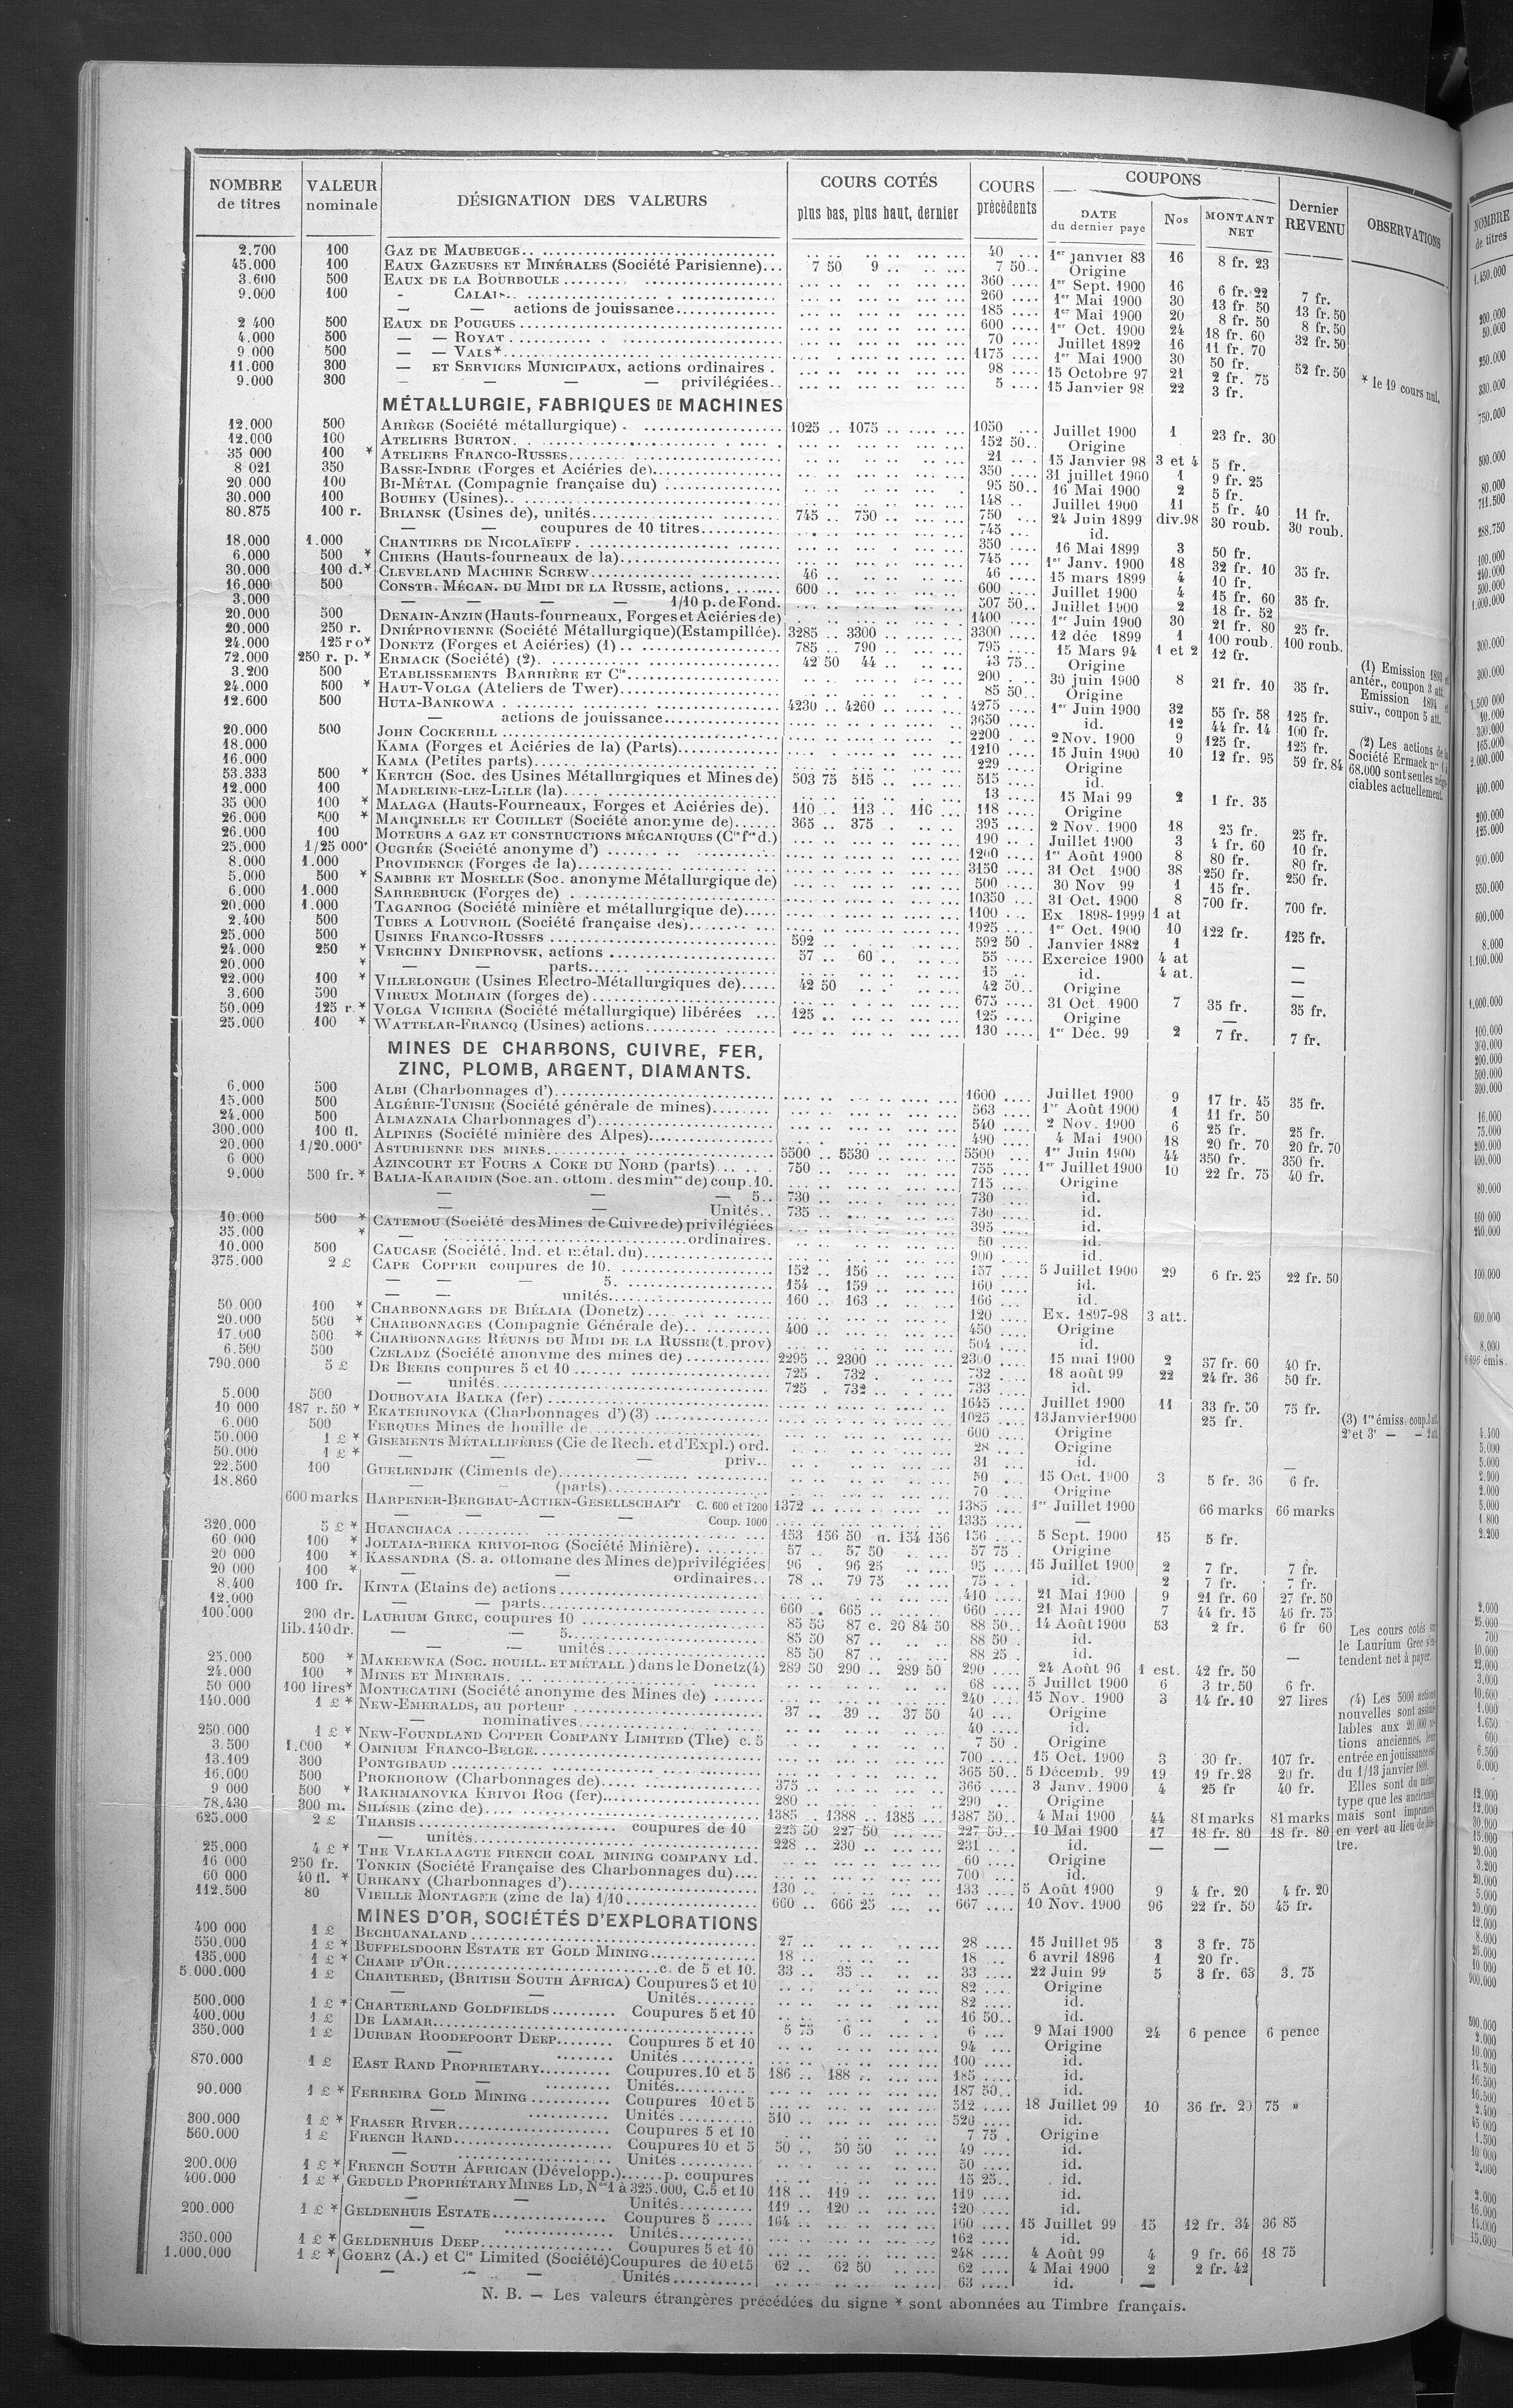 NOMBRE de titres | VALEUR nominale | DÉSIGNATION DES VALEURS | COURS COTÉS plus bas, plus haut, dernier | COURS précédents | COUPONS DATE du dernier payé | Nos | MONTANT NET | Dernier REVENU | OBSERVATIONS
2.700 100 GAZ DE MAUBEUGE 40 1er janvier 83 16 8 fr. 23
45.000 100 EAUX GAZEUSES ET MINÉRALES (Société Parisienne) 7 50 9 7 50 Origine
3.600 500 EAUX DE LA BOURBOULE 360 1er Sept. 1900 16 6 fr. 22 7 fr.
9.000 100 - CALAIS 260 1er Mai 1900 30 13 fr. 50 13 fr. 50
— — actions de jouissance 185 1er Mai 1900 20 8 fr. 50 8 fr. 50
2 400 500 EAUX DE POUGUES 600 1er Oct. 1900 24 18 fr. 60 32 fr. 50
4.000 500 — — ROYAT 70 Juillet 1892 16 11 fr. 70
9 000 500 — — VALS* 1175 1er Mai 1900 30 50 fr. 52 fr. 50 * le 19 cours nul.
11.000 300 — ET SERVICES MUNICIPAUX, actions ordinaires 98 15 Octobre 97 21 2 fr. 75
9.000 300 — — — — privilégiées 5 15 Janvier 98 22 3 fr.
MÉTALLURGIE, FABRIQUES DE MACHINES
12.000 500 ARIÈGE (Société métallurgique) 1025 1075 1050 Juillet 1900 1 23 fr. 30
12.000 100 ATELIERS BURTON 152 50 Origine
35 000 100 * ATELIERS FRANCO-RUSSES 21 15 Janvier 98 3 et 4 5 fr.
8 021 350 BASSE-INDRE (Forges et Aciéries de) 350 31 juillet 1900 1 9 fr. 25
20 000 100 BI-MÉTAL (Compagnie française du) 95 50 16 Mai 1900 2 5 fr.
30.000 100 BOUHEY (Usines) 148 Juillet 1900 11 5 fr. 40 11 fr.
80.875 100 r. BRIANSK (Usines de), unités 745 750 750 24 Juin 1899 div.98 30 roub. 30 roub.
— — coupures de 10 titres 745 id.
18.000 1.000 CHANTIERS DE NICOLAÏEFF 350 16 Mai 1899 3 50 fr.
6.000 500 * CHIERS (Hauts-fourneaux de la) 745 1er Janv. 1900 18 32 fr. 10 35 fr.
30.000 100 d.* CLEVELAND MACHINE SCREW 46 46 15 mars 1899 4 10 fr.
16.000 500 CONSTR. MÉCAN. DU MIDI DE LA RUSSIE, actions 600 600 Juillet 1900 4 15 fr. 60 35 fr.
3.000 — — — — 1/10 p. de Fond. 507 50 Juillet 1900 2 18 fr. 52
20.000 500 DENAIN-ANZIN (Hauts-fourneaux, Forges et Aciéries de) 1400 1er Juin 1900 30 21 fr. 80 25 fr.
20.000 250 r. DNIÉPROVIENNE (Société Métallurgique)(Estampillée). 3285 3300 3300 12 déc 1899 1 100 roub. 100 roub.
24.000 125 ro* DONETZ (Forges et Aciéries) (1) 785 790 795 15 Mars 94 1 et 2 12 fr.
72.000 250 r. p. * ERMACK (Société) (2). 42 50 44 43 75 Origine
3.200 500 ETABLISSEMENTS BARRIÈRE ET Cie 200 30 juin 1900 8 21 fr. 10 35 fr.
24.000 500 * HAUT-VOLGA (Ateliers de Twer) 85 50 Origine
12.600 500 HUTA-BANKOWA 4230 4260 4275 1er Juin 1900 32 55 fr. 58 125 fr.
— actions de jouissance 3650 id. 12 44 fr. 14 100 fr.
20.000 500 JOHN COCKERILL 2200 2 Nov. 1900 9 125 fr. 125 fr.
18.000 KAMA (Forges et Aciéries de la) (Parts) 1210 15 Juin 1900 10 12 fr. 95 59 fr. 84
16.000 KAMA (Petites parts) 229 Origine
53.333 500 * KERTCH (Soc. des Usines Métallurgiques et Mines de) 503 75 515 515 id.
12.000 100 MADELEINE-LEZ-LILLE (la) 13 15 Mai 99 2 1 fr. 35
35 000 100 * MALAGA (Hauts-Fourneaux, Forges et Aciéries de). 110 113 116 118 Origine
26.000 500 * MARCINELLE ET COUILLET (Société anonyme de) 365 375 395 2 Nov. 1900 18 25 fr. 25 fr.
26.000 100 MOTEURS A GAZ ET CONSTRUCTIONS MÉCANIQUES (Cie fse d.) 190 Juillet 1900 3 4 fr. 60 10 fr.
25.000 1/25 000e OUGRÉE (Société anonyme d') 1200 1er Août 1900 8 80 fr. 80 fr.
8.000 1.000 PROVIDENCE (Forges de la) 3150 31 Oct 1900 38 250 fr. 250 fr.
5.000 500 * SAMBRE ET MOSELLE (Soc. anonyme Métallurgique de) 500 30 Nov 99 1 15 fr.
6.000 1.000 SARREBRUCK (Forges de) 10350 31 Oct. 1900 8 700 fr. 700 fr.
20.000 1.000 TAGANROG (Société minière et métallurgique de) 1100 Ex 1898-1999 1 at
2.400 500 TUBES A LOUVROIL (Société française des) 1925 1er Oct. 1900 10 122 fr. 125 fr.
25.000 500 USINES FRANCO-RUSSES 592 592 50 Janvier 1882 1
24.000 250 * VERCHNY DNIEPROVSK, actions 57 60 55 Exercice 1900 4 at —
20.000 * — — parts 15 id. 4 at. —
22.000 100 * VILLELONGUE (Usines Electro-Métallurgiques de) 42 50 42 50 Origine —
3.600 500 VIREUX MOLHAIN (forges de) 675 31 Oct 1900 7 35 fr. 35 fr.
50.000 125 r. * VOLGA VICHERA (Société métallurgique) libérées 125 125 Origine —
25.000 100 * WATTELAR-FRANCQ (Usines) actions 130 1er Déc. 99 2 7 fr. 7 fr.
(1) Emission 1893 et antér., coupon 3 att. Emission 1894 et suiv., coupon 5 att.
(2) Les actions de la Société Ermack nos 1 à 68.000 sont seules négociables actuellement.
MINES DE CHARBONS, CUIVRE, FER,
ZINC, PLOMB, ARGENT, DIAMANTS.
6.000 500 ALBI (Charbonnages d') 1600 Juillet 1900 9 17 fr. 45 35 fr.
15.000 500 ALGÉRIE-TUNISIE (Société générale de mines) 563 1er Août 1900 1 11 fr. 50
24.000 500 ALMAZNAIA Charbonnages d') 540 2 Nov. 1900 6 25 fr. 25 fr.
300.000 100 fl. ALPINES (Société minière des Alpes) 490 4 Mai 1900 18 20 fr. 70 20 fr. 70
20.000 1/20.000e ASTURIENNE DES MINES 5500 5530 5500 1er Juin 1900 44 350 fr. 350 fr.
6 000 AZINCOURT ET FOURS A COKE DU NORD (parts) 750 755 1er Juillet 1900 10 22 fr. 75 40 fr.
9.000 500 fr. * BALIA-KARAIDIN (Soc. an. ottom. des mines de) coup. 10. 715 Origine
— — — 5 730 730 id.
Unités 735 730 id.
10.000 500 * CATEMOU (Société des Mines de Cuivre de) privilégiées 395 id.
35.000 * — ordinaires. 50 id.
10.000 500 CAUCASE (Société. Ind. et métal. du) 900 id.
375.000 2 £ CAPE COPPER coupures de 10. 152 156 157 5 Juillet 1900 29 6 fr. 25 22 fr. 50
— — — 5. 154 159 160 id.
— — unités 160 163 166 id.
50.000 100 * CHARBONNAGES DE BIÉLAIA (Donetz) 120 Ex. 1897-98 3 att.
20.000 500 * CHARBONNAGES (Compagnie Générale de) 400 450 Origine
17.000 500 * CHARBONNAGES RÉUNIS DU MIDI DE LA RUSSIE (t. prov) 504 id.
6.500 500 CZELADZ (Société anonyme des mines de) 2295 2300 2300 15 mai 1900 2 37 fr. 60 40 fr.
790.000 5 £ DE BEERS coupures 5 et 10 725 732 732 18 août 99 22 24 fr. 36 50 fr.
— unités 725 732 733 id.
5.000 500 DOUBOVAIA BALKA (fer) 1645 Juillet 1900 11 33 fr. 50 75 fr.
10 000 187 r. 50 * EKATERINOVKA (Charbonnages d') (3) 1025 13 Janvier 1900 25 fr. (3) 1re émiss. coup. 3 att.
6.000 500 FERQUES Mines de houille de 600 Origine 2e et 3e — — 2 att.
50.000 1 £ * GISEMENTS MÉTALLIFÈRES (Cie de Rech. et d'Expl.) ord. 28 Origine
50.000 1 £ * — — — priv. 31 id.
22.500 100 GUELENDJIK (Ciments de) 50 15 Oct. 1900 3 5 fr. 36 6 fr.
18.860 — — (parts) 70 Origine
600 marks HARPENER-BERGBAU-ACTIEN-GESELLSCHAFT C. 600 et 1200 1372 1385 1er Juillet 1900 66 marks 66 marks
— — — — Coup. 1000 1335 —
320.000 5 £ * HUANCHACA 153 156 50 a. 154 156 156 5 Sept. 1900 15 5 fr.
60 000 100 * JOLTAIA-RIEKA KRIVOI-ROG (Société Minière) 57 57 50 57 75 Origine
20 000 100 * KASSANDRA (S. a. ottomane des Mines de) privilégiées 96 96 25 95 15 Juillet 1900 2 7 fr. 7 fr.
20 000 100 * — — ordinaires 78 79 75 75 id. 2 7 fr. 7 fr.
8.400 100 fr. KINTA (Etains de) actions 410 21 Mai 1900 9 21 fr. 60 27 fr. 50
12.000 — — parts 660 665 660 21 Mai 1900 7 44 fr. 15 46 fr. 75
100.000 200 dr. LAURIUM GREC, coupures 10 85 50 87 c. 20 84 50 88 50 14 Août 1900 53 2 fr. 6 fr 60
lib. 140 dr. — — 5 85 50 87 88 50 id.
— — unités 85 50 87 88 25 id. —
Les cours cotés sur le Laurium Grec s'entendent net à payer.
25.000 500 * MAKEEWKA (SOC. HOUILL. ET MÉTALL.) dans le Donetz (4) 289 50 290 289 50 290 24 Août 96 1 est. 42 fr. 50
24.000 100 * MINES ET MINERAIS 68 5 Juillet 1900 6 3 fr. 50 6 fr.
50 000 100 lires* MONTECATINI (Société anonyme des Mines de) 240 15 Nov. 1900 3 14 fr. 10 27 lires
140.000 1 £ * NEW-EMERALDS, au porteur 37 39 37 50 40 Origine
— nominatives 40 id.
250.000 1 £ * NEW-FOUNDLAND COPPER COMPANY LIMITED (The) c. 5 7 50 Origine
3.500 1.000 * OMNIUM FRANCO-BELGE 700 15 Oct. 1900 3 30 fr. 107 fr.
13.109 300 PONTGIBAUD 365 50 5 Décemb. 99 19 19 fr. 28 20 fr.
16.000 500 PROKHOROW (Charbonnages de) 375 366 3 Janv. 1900 4 25 fr 40 fr.
9 000 500 * RAKHMANOVKA KRIVOI ROG (fer) 280 290 Origine
78.430 300 m. SILÉSIE (zinc de) 1385 1388 1385 1387 50 4 Mai 1900 44 81 marks 81 marks
625.000 2 £ THARSIS coupures de 10 225 50 227 50 227 50 10 Mai 1900 17 18 fr. 80 18 fr. 80
— unités 228 230 231 id. — —
(4) Les 5000 actions nouvelles sont assimilables aux 20.000 actions anciennes, leur entrée en jouissance est du 1/13 janvier 1899. Elles sont du même type que les anciennes mais sont imprimées en vert au lieu de bistre.
25.000 4 £ * THE VLAKLAAGTE FRENCH COAL MINING COMPANY LD. 60 Origine
16 000 250 fr. TONKIN (Société Française des Charbonnages du) 700 id.
60 000 40 fl. * URIKANY (Charbonnages d') 130 133 5 Août 1900 9 4 fr. 20 4 fr. 20
112.500 80 VIEILLE MONTAGNE (zinc de la) 1/10 660 666 25 667 10 Nov. 1900 96 22 fr. 50 45 fr.
MINES D'OR, SOCIÉTÉS D'EXPLORATIONS
400 000 1 £ BECHUANALAND 27 28 15 Juillet 95 3 3 fr. 75
550.000 1 £ * BUFFELSDOORN ESTATE ET GOLD MINING 18 18 6 avril 1896 1 20 fr.
135.000 1 £ * CHAMP D'OR c. de 5 et 10. 33 35 33 22 Juin 99 5 3 fr. 63 3. 75
5.000.000 1 £ CHARTERED, (BRITISH SOUTH AFRICA) Coupures 5 et 10 82 Origine
— — Unités 82 id.
500.000 1 £ * CHARTERLAND GOLDFIELDS Coupures 5 et 10 16 50 id.
400.000 1 £ DE LAMAR 5 75 6 6 9 Mai 1900 24 6 pence 6 pence
350.000 1 £ DURBAN ROODEPOORT DEEP Coupures 5 et 10 94 Origine
— Unités 100 id.
870.000 1 £ EAST RAND PROPRIETARY Coupures 10 et 5 186 188 185 id.
— Unités 187 50 id.
90.000 1 £ * FERREIRA GOLD MINING Coupures 10 et 5 512 18 Juillet 99 10 36 fr. 20 75 »
— Unités 510 520 id.
300.000 1 £ * FRASER RIVER Coupures 5 et 10 7 75 Origine
560.000 1 £ FRENCH RAND Coupures 10 et 5 50 50 50 49 id.
— Unités 50 id.
200.000 1 £ * FRENCH SOUTH AFRICAN (Développ.) p. coupures 15 25 id.
400.000 1 £ * GEDULD PROPRIÉTARY MINES LD, Nos 1 à 325.000, C. 5 et 10 118 119 119 id.
— Unités 119 120 120 id.
200.000 1 £ * GELDENHUIS ESTATE Coupures 5 164 160 15 Juillet 99 15 12 fr. 34 36 85
— Unités 162 id.
350.000 1 £ * GELDENHUIS DEEP Coupures 5 et 10 248 4 Août 99 4 9 fr. 66 18 75
1.000.000 1 £ * GOERZ (A.) et Cie Limited (Société) Coupures de 10 et 5 62 62 50 62 4 Mai 1900 2 2 fr. 42
— — — Unités 63 id. —
N. B. — Les valeurs étrangères précédées du signe * sont abonnées au Timbre français.